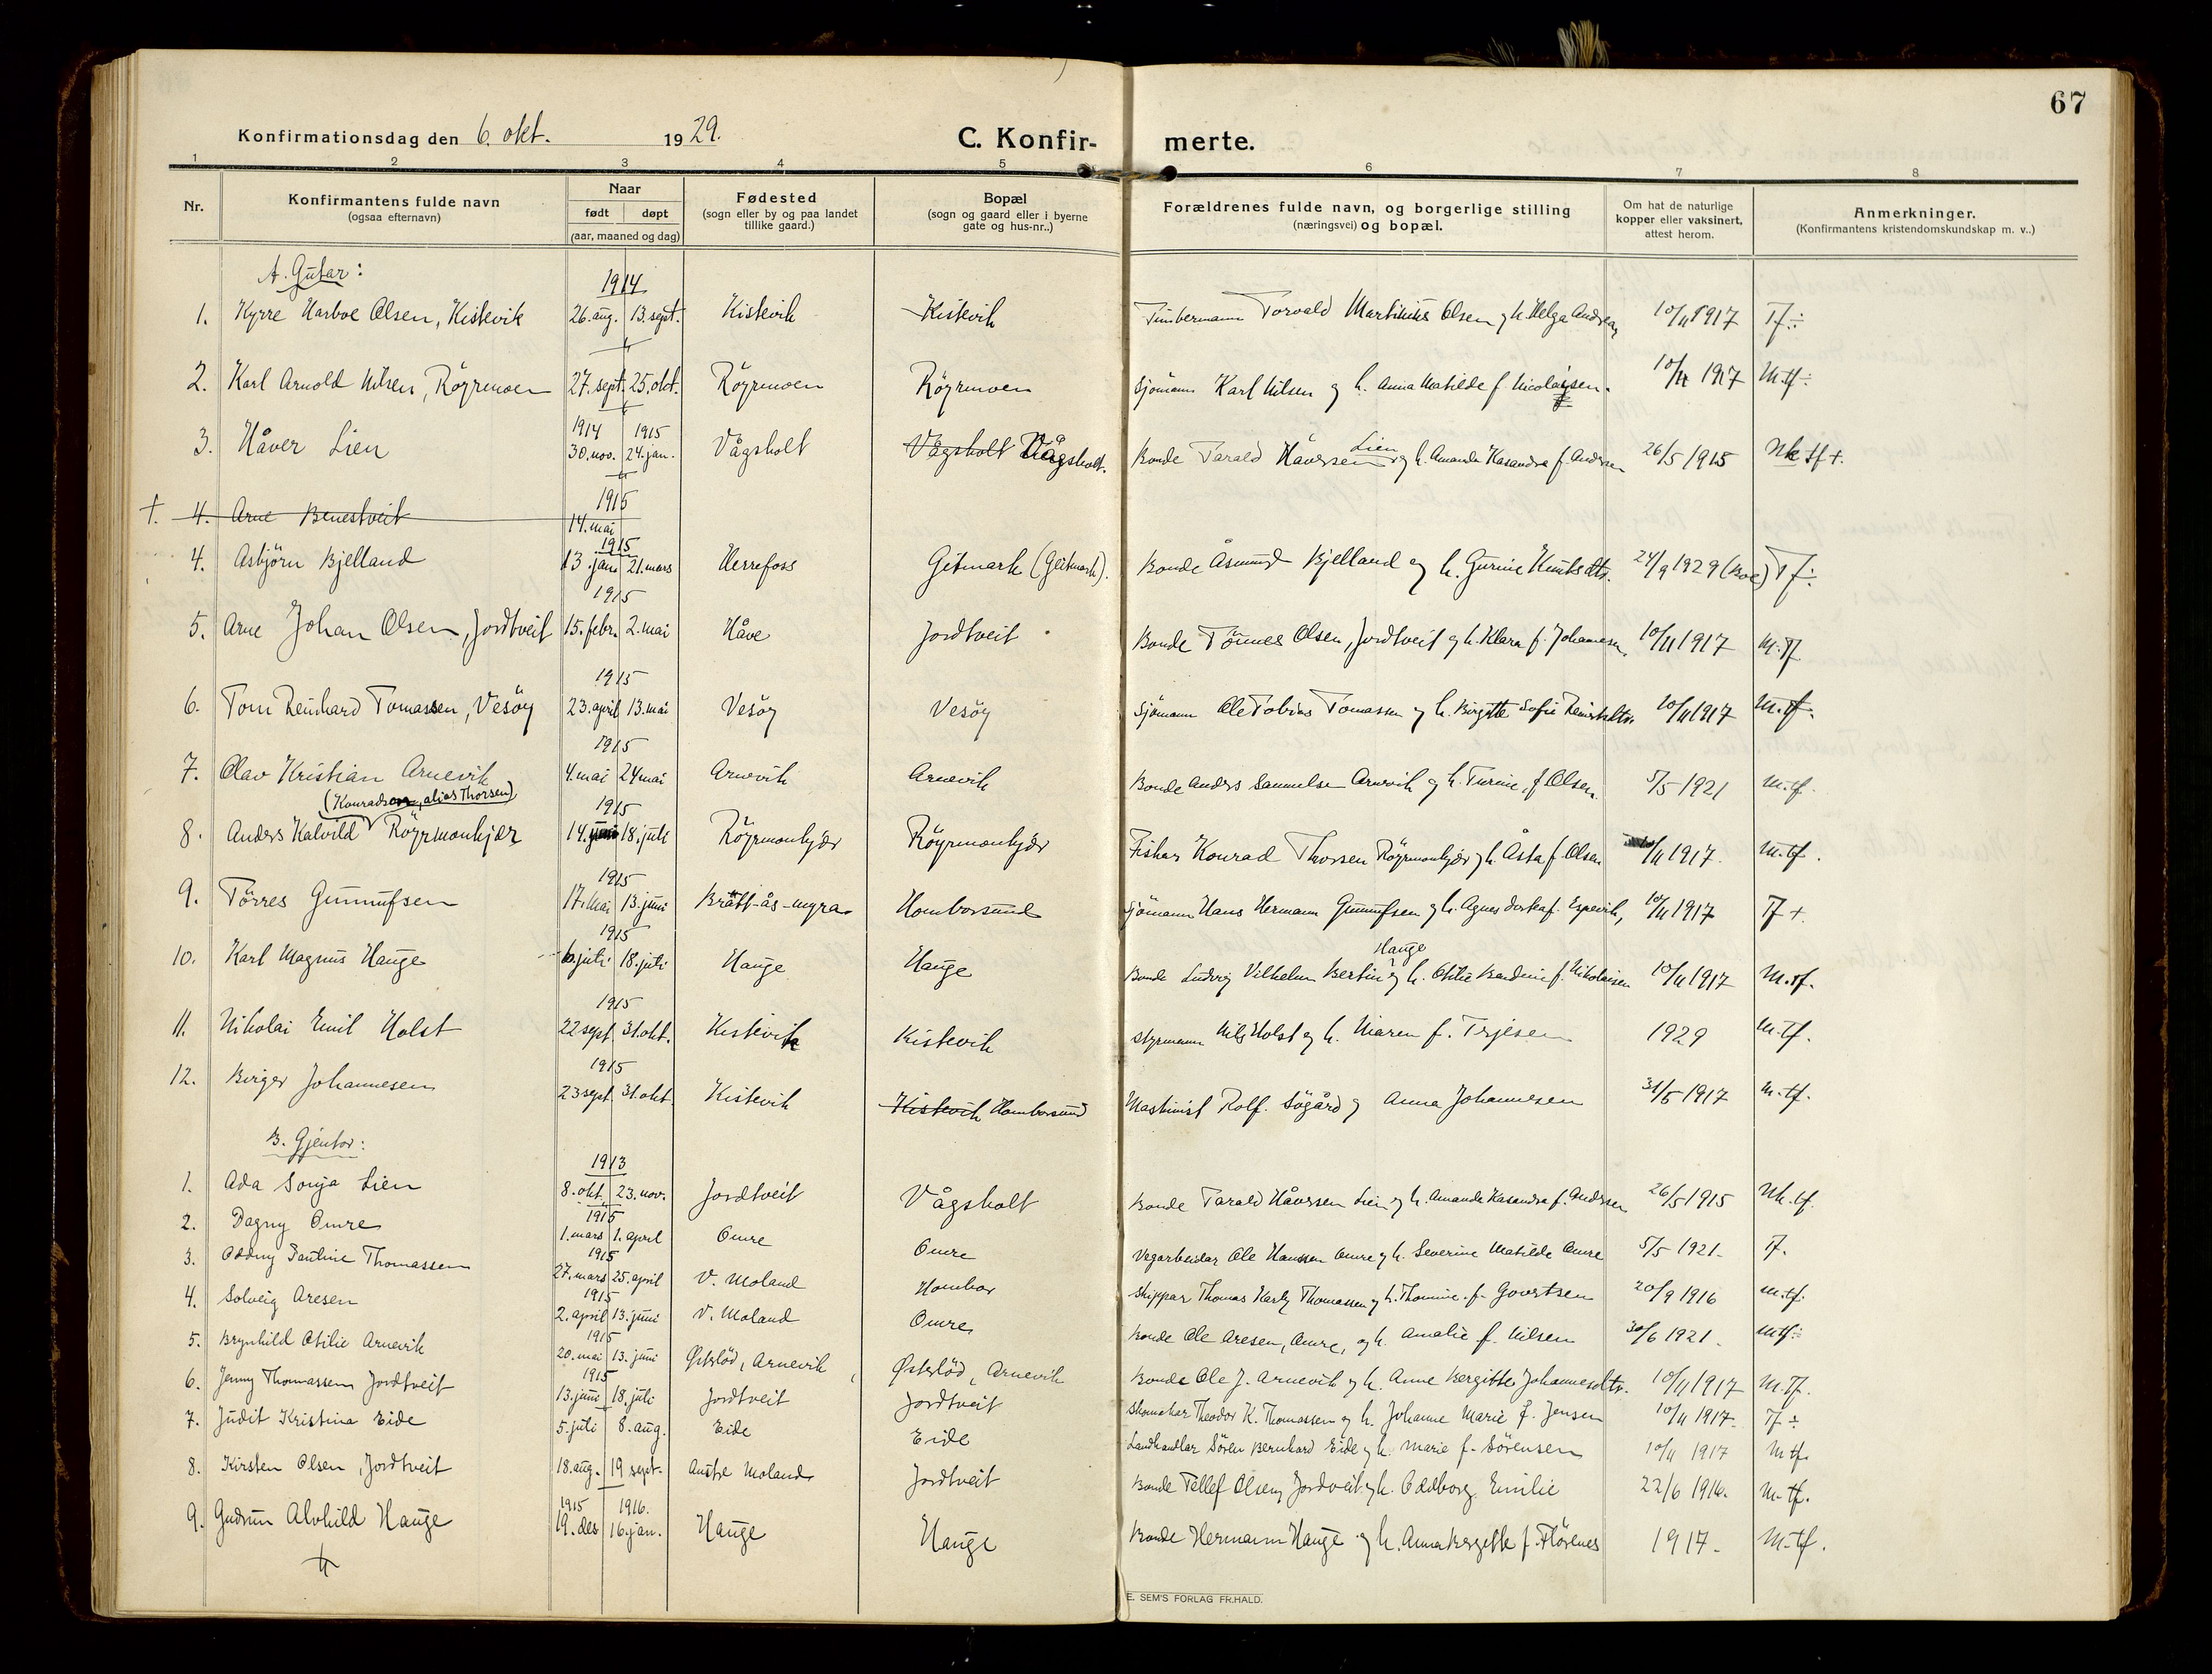 67
Konfirmationsdag den 6. okt. 1929.
C. Konfirmerte.
1 2 3 4 5 6 7 8
Nr.
Konfirmantens fulde navn
(ogsaa efternavn)
Naar
født døpt
(aar, maaned og dag)
Fødested
(sogn eller by og paa landet
tillike gaard.)
Bopæl
(sogn og gaard eller i byerne
gate og hus-nr..)
Forældrenes fulde navn, og borgerlige stilling
(næringsvei) og bopæl.
Om hat de naturlige
kopper eller vaksinert,
attest herom.
Anmerkninger.
(Konfirmantens kristendomskundskap m. v..)
A. Gutar:
1914
1. Kyrre Harboe Olsen, Kistevik 26. aug. 13. sept. Kistevik Kistevik Timbermann Torvald Martinius Olsen g h. Helga Andrea 10/11 1917 Tf ÷
2. Karl Arnold Nilsen, Röyrmoen 27. sept. 25. okt. Röyrmoen Röyrmoen Sjömann Karl Nilsen g h. Anna Matilde f. Nicolaisen. 10/11 1917 M.tf ÷
1914 1915
3. Håver Lien 30. nov. 24. jan. Vågsholt Vågsholt Vågsholt. Bonde Tarald Håversen Lien g h. Amanda Kasandra f. Andersen 26/5 1915 Nk tf +.
1915
†. 4. Arne Benestveit 14. mai
1915
4. Asbjörn Bjelland 13. jan. 21. mars Herrefoss Gitmark (Geitmark). Bonde Åsmund Bjelland og h. Gurine Knutsdtr. 24/9 1929 (Boe) Tf ÷
1915
5. Arne Johan Olsen, Jordtveit 15. febr. 2. mai Håve Jordtveit Bonde Tönnes Olsen, Jordtveit g h. Klara f. Johannesen, 10/11 1917 M. Tf
1915
6. Tom Reinhard Tomassen, Vesöy 23. april 13. mai Vesöy Vesöy Sjömann Ole Tobias Tomassen g h. Birgitte Sofie Reinertsdtr. 10/11 1917 M. tf.
1915
7. Olav Kristian Arnevik 4. mai 24 mai Arnevik Arnevik Bonde Anders Samuelsen Arnevik g h. Turine, f Olsen. 5/5 1921 M. tf.
(Konradsen, alias Thorsen)
1915
8. Anders Kalvild Röyrmonkjær 14. juni 18. juli Röyrmonkjær Röyrmonkjær Fiskar Konrad Thorsen Röyrmonkjær g h. Åsta f. Olsen /11 1917. M. tf.
1915
9. Törres Gunnufsen 17. mai 13. juni Brått-ås-myra Homborsund Sjömann Hans Hermann Gunnufsen g h. Agnes Dortea f. Espevik, 10/11 1917 Tf +.
1915
10. Karl Magnus Hauge 6. juli 18. juli Hauge Hauge Bonde Ludvig Vilhelm Bertin Hauge g h. Otilie Bendine f. Nikolaisen 10/11 1917 M. tf.
1915
11. Nikolai Emil Holst 22 sept. 31. okt. Kistevik Kistevik Styrmann Nils Holst g h. Maren f. Terjesen 1929 M. tf.
1915
12. Birger Johannesen 23 sept. 31. okt. Kistevik Kistevik Homborsund Maskinist Rolf. Sögård g Anna Johannesen 31/5 1917 M. tf.
B. Gjentor:
1913
1. Ada Sonja Lien 8. okt. 23. nov. Jordtveit Vågsholt Bonde Tarald Håversen Lien g h. Amanda Kasandra f. Andersen 26/5 1915 Nk. tf.
1915
2. Dagny Omre 1. mars 1. april Omre Omre Vegarbeidar Ole Hanssen Omre g h. Severine Matilde Omre 5/5 1921. Tf.
1915
3. Oddny Pauline Thomassen 27. mars 25. april V. Moland Hombor Skippar Thomas Karly Thomassen g h. Thomine f. Govertsen 20/9 1916 M. tf.
1915
4. Solveig Aresen 2. april 13. juni V. Moland Omre Bonde Ole Aresen, Omre, og h. Amalie f. Nilsen 30/6 1921. M tf ÷
1915
5. Brynhild Otilie Arnevik 20. mai 13. juni Østeröd, Arnevik Østeröd, Arnevik Bonde Ole J. Arnevik g h. Anne Bergitte Johannesdtr. 10/11 1917 M. Tf.
1915
6. Jenny Thomassen Jordtveit 13. juni 18. juli Jordtveit Jordtveit Skomakar Theodor K. Thomassen g h. Johanne Marie f. Jensen 10/11 1917. Tf ±
7. Judit Kristina Eide 5. juli 8. aug. Eide Eide Landhandlar Sören Bernhard Eide g h. Marie f. Sörensen 10/11 1917 M tf.
8. Kirsten Olsen, Jordtveit 18. aug. 19 sept. Austre Moland Jordtveit Bonde Tellef Olsen Jordveit g h. Oddborg Emilie 22/6 1916. M. tf.
1915 1916.
9. Gudrun Alvhild Hauge 19. des 16. jan. Hauge Hauge Bonde Hermann Hauge g h. Anna Bergette f. Flörenes 1917. M. tf.
E. SEM'S FORLAG FR.HALD.